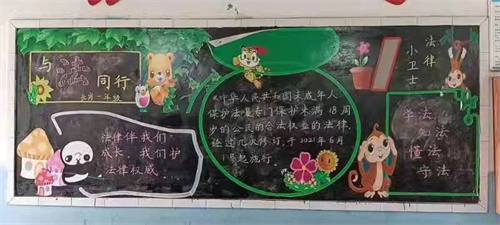 与法同行
年级
法律伴我们
成长，我们护
法律权威...
《中华人民共和国未成年人
保护法是专门保护未满18周
岁的公民的合法权益的法律，
经过几次修订，于2021年6月
1号起施行。
法律
小卫士
学法
知法
懂法
守法